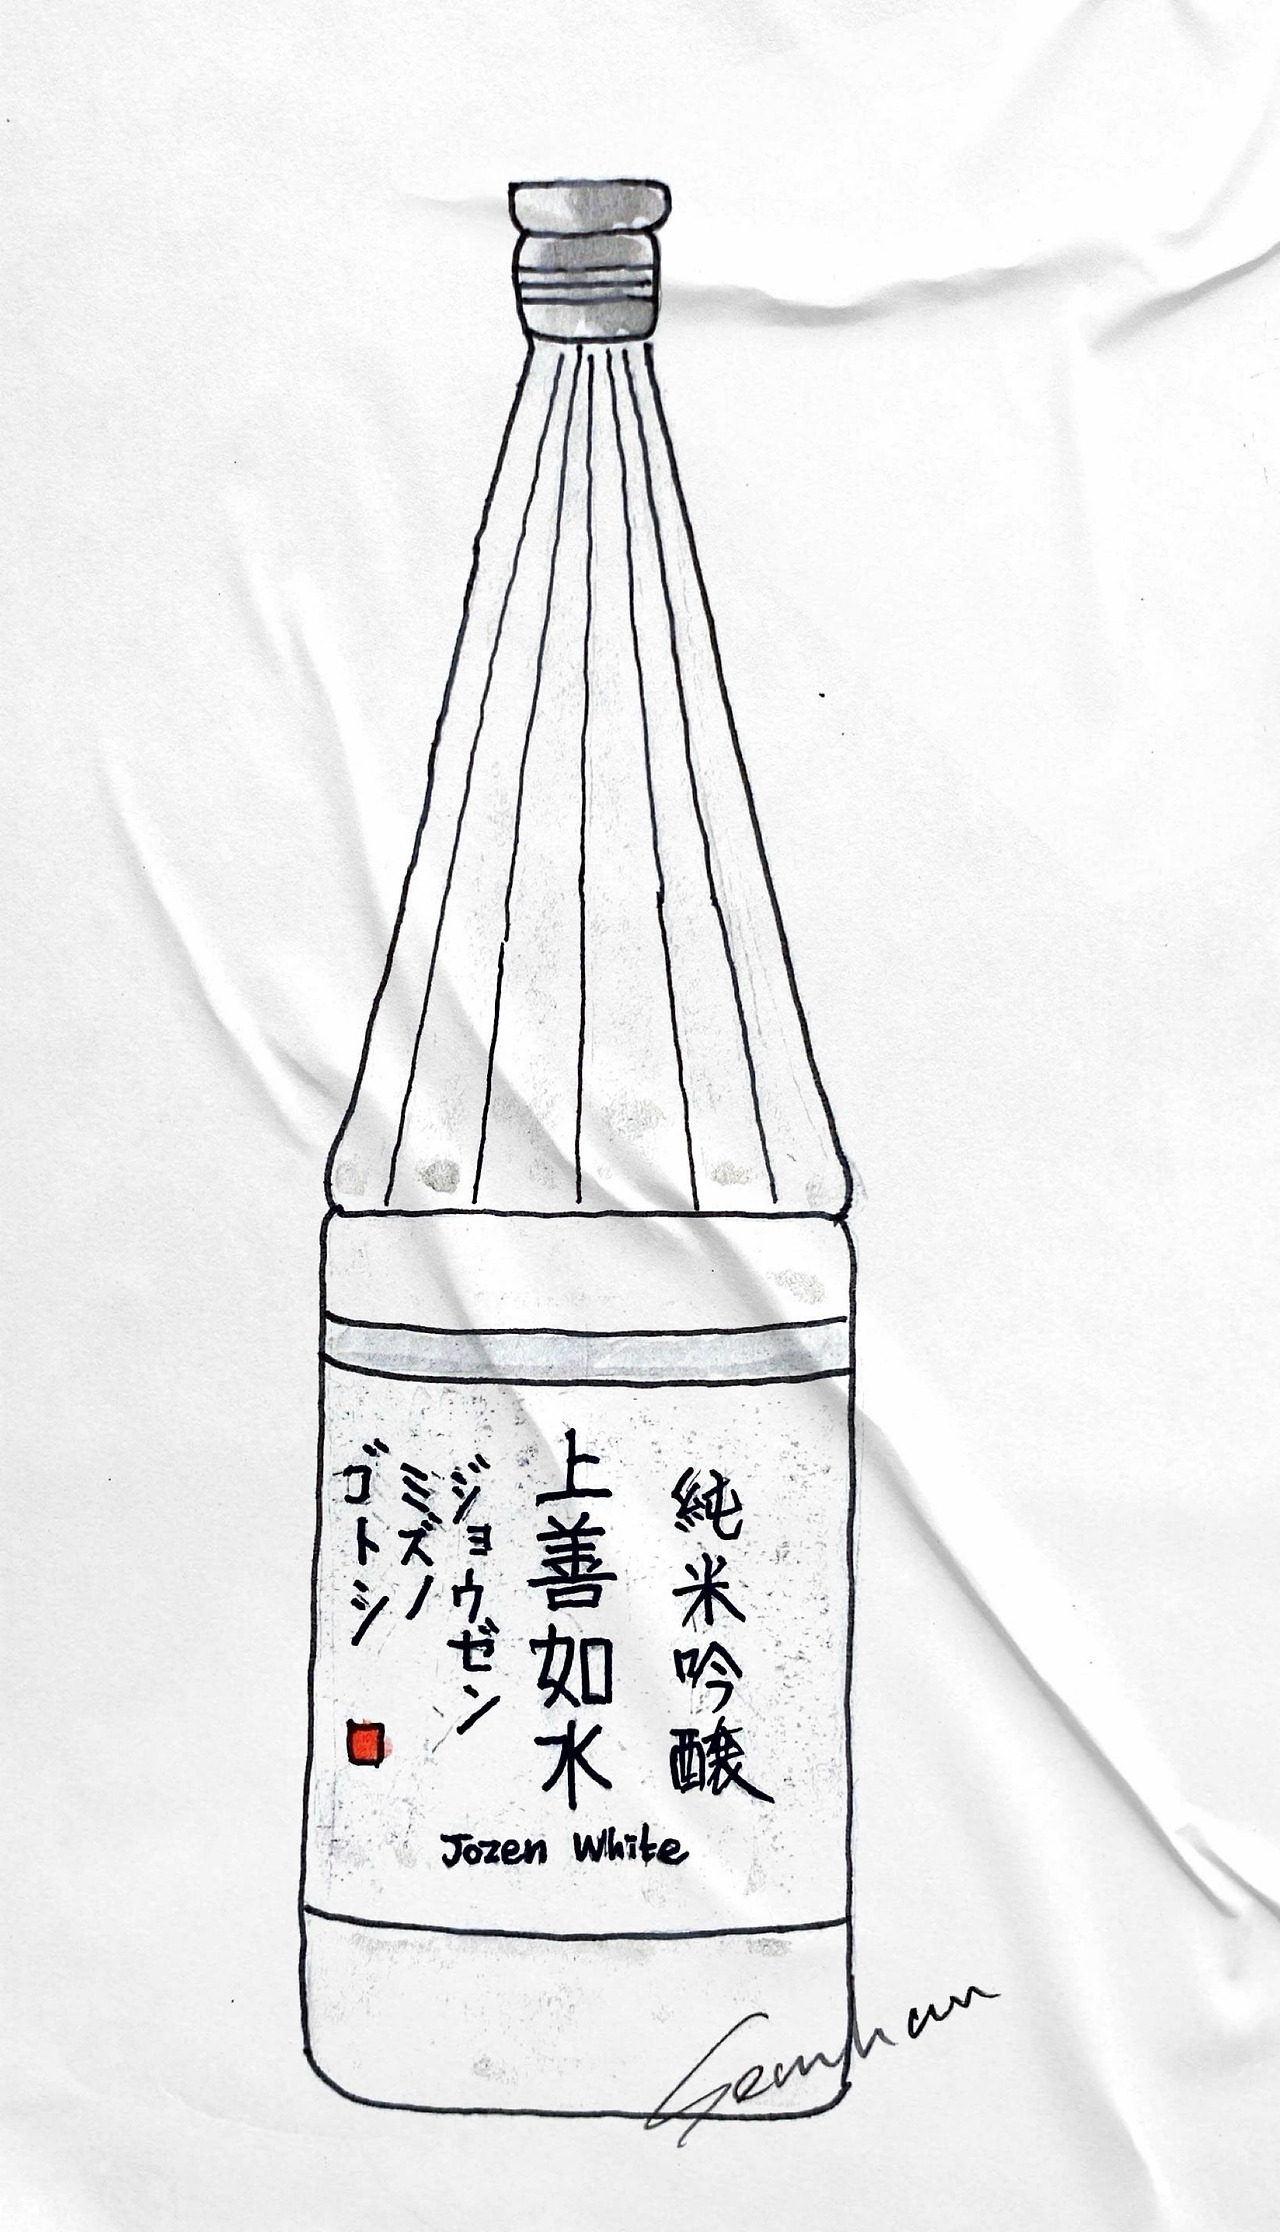 純米吟醸
上善如水
ジョウゼン
ミズノ
ゴトシ
Jozen White